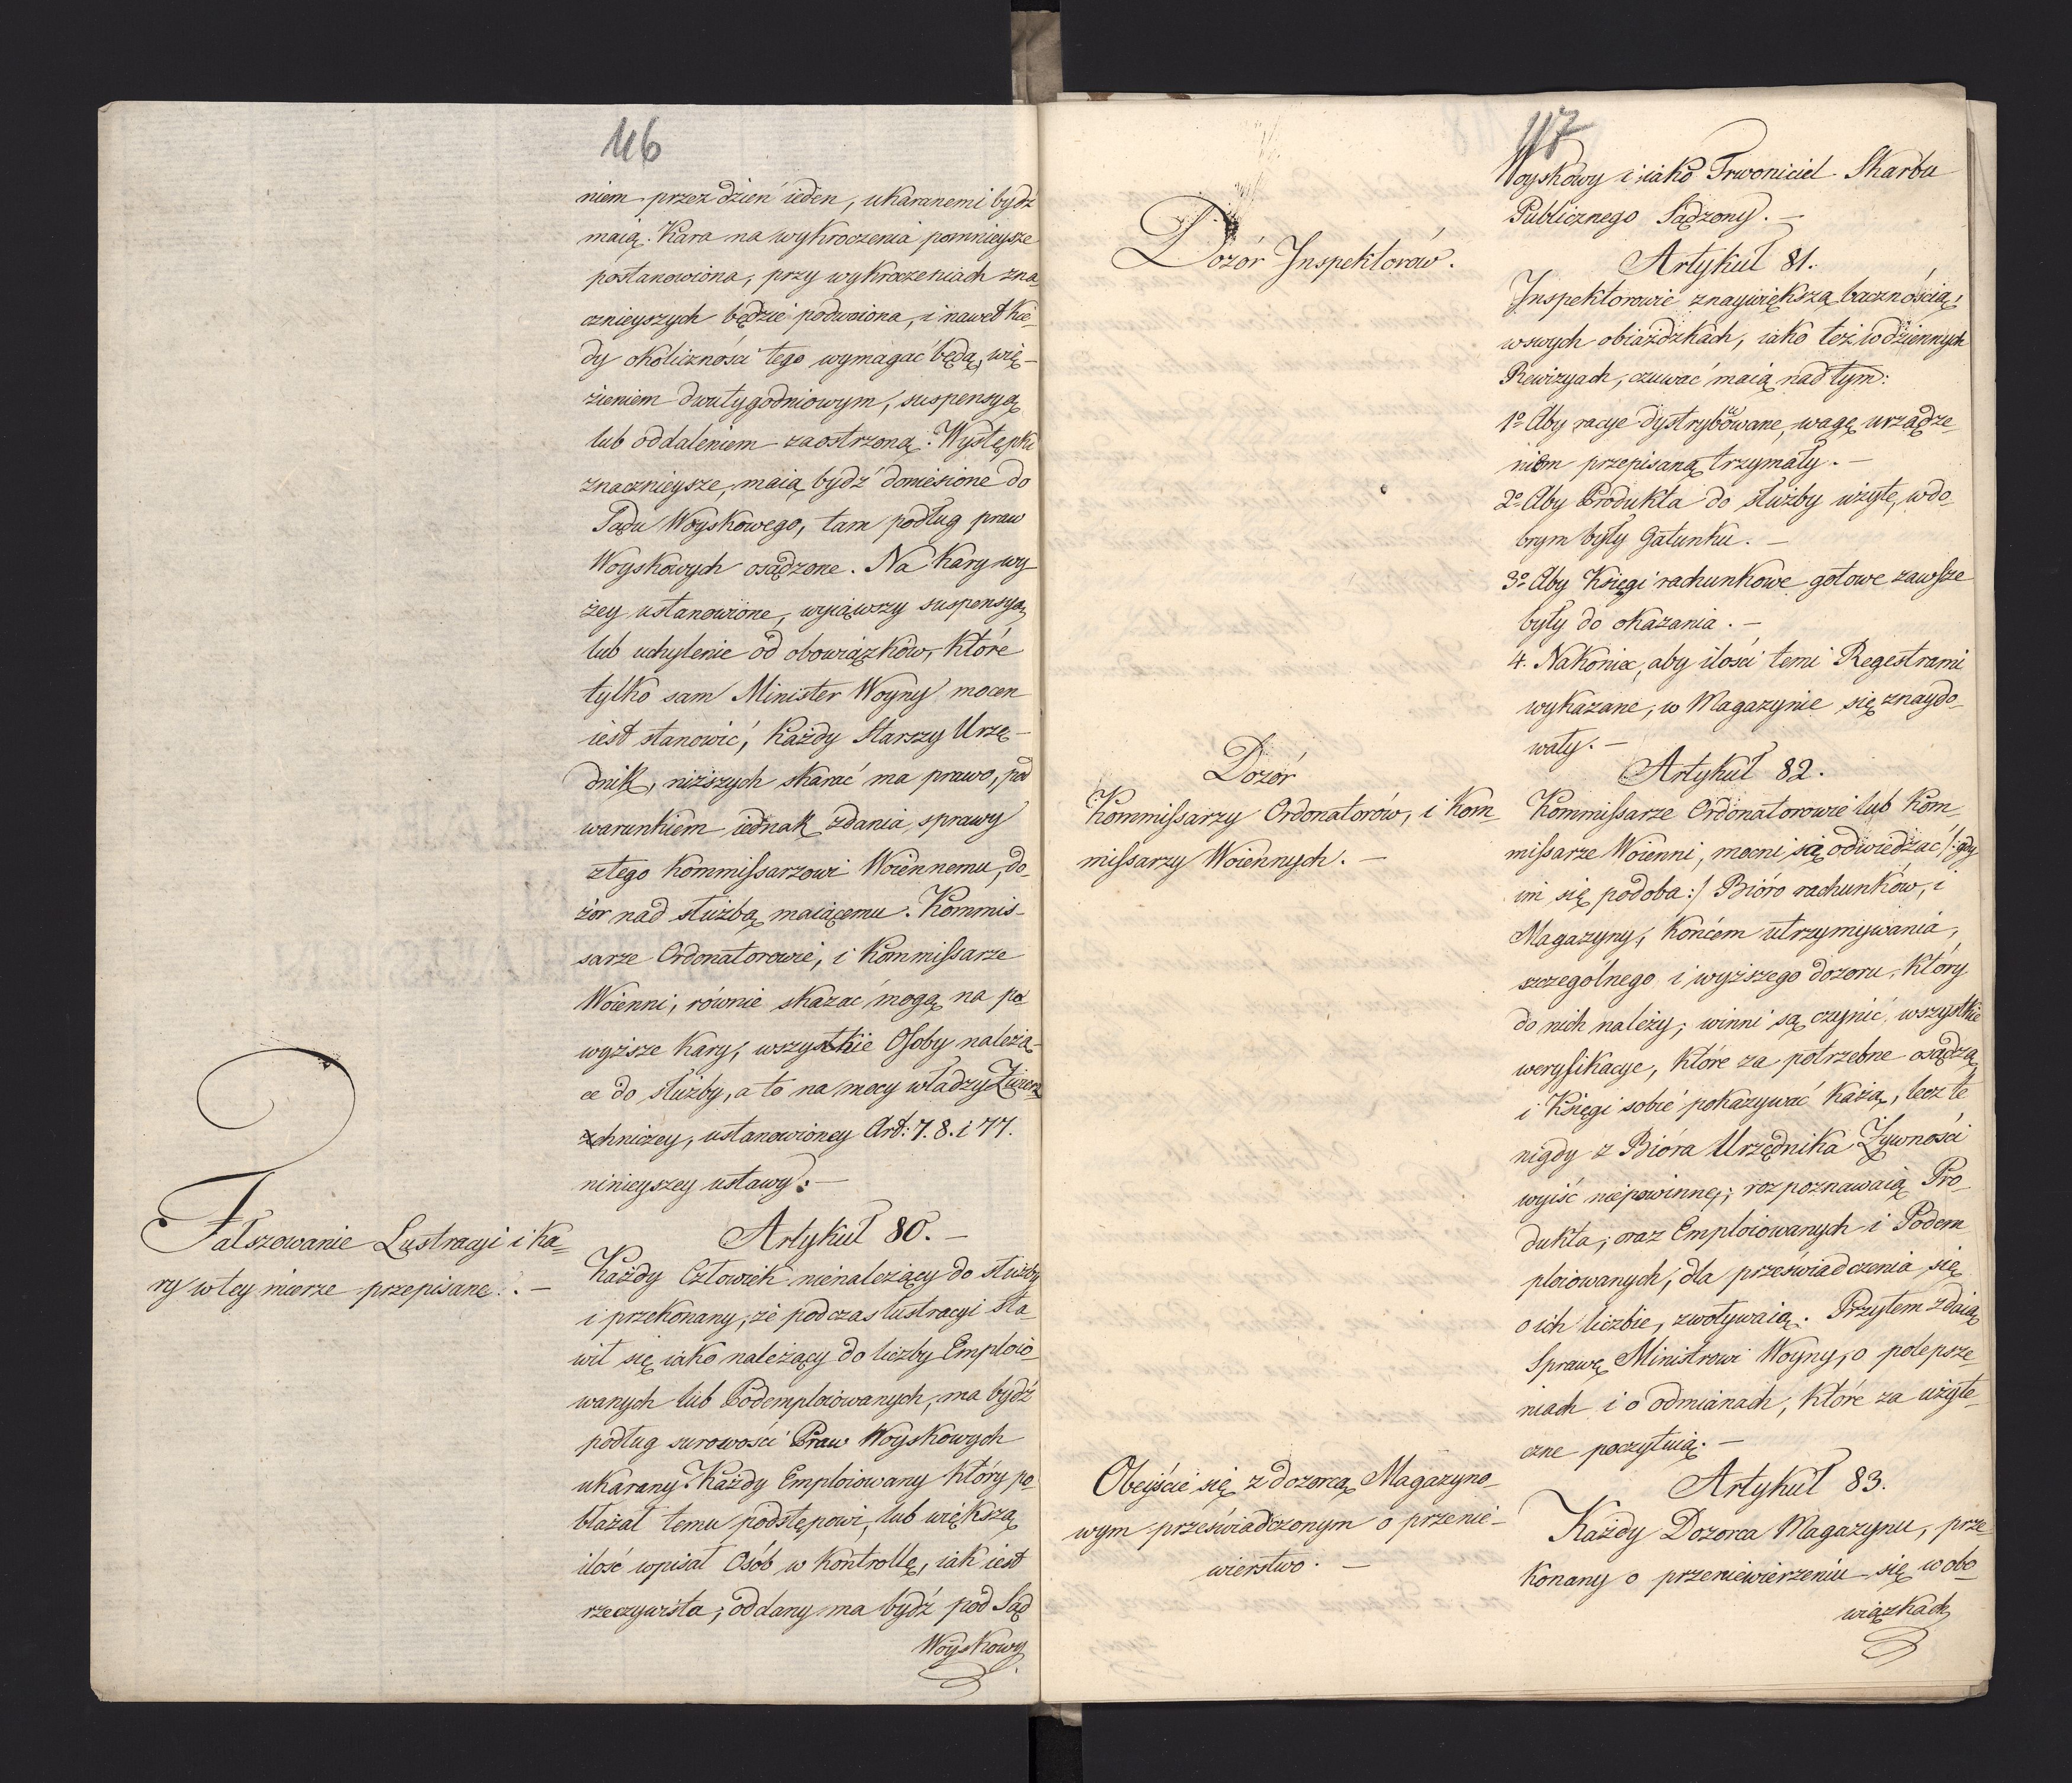 116
niem przez dzień ieden, ukaranemi bydź
maią. Kara na wykroczenia pomnieysze
postanowiona, przy wykroczeniach zna
cznieyszych będzie podwoiona, i nawet kie-
dy okoliczności tego wymagać będą, wię-
zieniem dwutygodniowym, suspensyą
lub oddaleniem zaostrzoną. Występki
znacznieysze, maią bydź doniesione do
Sądu Woyskowego, tam podług praw
Woyskowych osądzone. Na kary wy-
żey ustanowione, wyiąwszy suspensyą
lub uchylenie od obowiązków, które
tylko sam Minister Woyny mocen
iest stanowić, Każdy Starszy Urzę-
dnik, niższych skarać ma prawo, pod
warunkiem iednak zdania sprawy
z tego Kommissarzowi Woiennemu, do-
zór nad służbą maiącemu. Kommis-
sarze Ordonatorowie, i Kommissarze
Woienni, równie skazać mogą na po
wyższe kary, wszystkie Osoby należą-
ce do służby, a to na mocy władzy Zwierz
chniczey, ustanowioney Art: 7. 8. i 77.
ninieyszey ustawy. —
Fałszowanie Lustracyi i ka=
ry w tey mierze przepisane. —
Artykuł 80. —
Każdy Człowiek nienależący do służby
i przekonany, że podczas lustracyi sta-
wił się iako należący do liczby Emploio-
wanych lub Podemploiowanych, ma bydź
podług surowości Praw Woyskowych
ukarany. Każdy Emploiowany który po-
błażał temu podstępowi, lub większą
ilość wpisał Osób w Kontrollę, iak iest
rzeczywista, oddany ma bydź pod Sąd
Woyskowy
117
Woyskowy i iako Trwoniciel Skarbu
Publicznego Sądzony. —
Dozór Inspektorów.
Artykuł 81.
Inspektorowie z naywiększą bacznością,
w swych obiażdżkach, iako też w dziennych
Rewizyach, czuwać maią nad tym:
1o Aby racye dystrybuowane, wagę urządze-
niem przepisaną trzymały. —
2o Aby Produkta do służby użyte, w do-
brym były Gatunku. —
3o Aby Księgi rachunkowe gotowe zawsze
były do okazania. —
4. Nakoniec, aby ilości temi Regestrami
wykazane, w Magazynie się znaydo-
wały. —
Dozór
Kommissarzy Ordonatorów, i Kom-
missarzy Woiennych. —
Artykuł 82.
Kommissarze Ordonatorowie lub Kom-
missarze Woienni, mocni są odwiedzać /: gdy
im się podoba :/ Bióro rachunków, i
Magazyny, końcem utrzymywania,
szczególnego i wyższego dozoru, który
do nich należy, winni są czynić wszystkie
weryfikacye, które za potrzebne osądzą
i Księgi sobie pokazywać każą, lecz te
nigdy z Bióra Urzędnika Żywności
wyiść niepowinne; rozpoznawaią Pro-
dukta, oraz Emploiowanych i Podem
ploiowanych, dla przeświadczenia się
o ich liczbie, zwoływaią. Przytem zdaią
Sprawę Ministrowi Woyny, o polepsze-
niach i o odmianach, które za użyte-
czne poczytuią. —
Obeyście się z dozorcą Magazyno-
wym przeświadczonym o przenie-
wierstwo. —
Artykuł 83.
Każdy Dozorca Magazynu, prze-
konany o przeniewierzeniu się w obo-
wiązkach